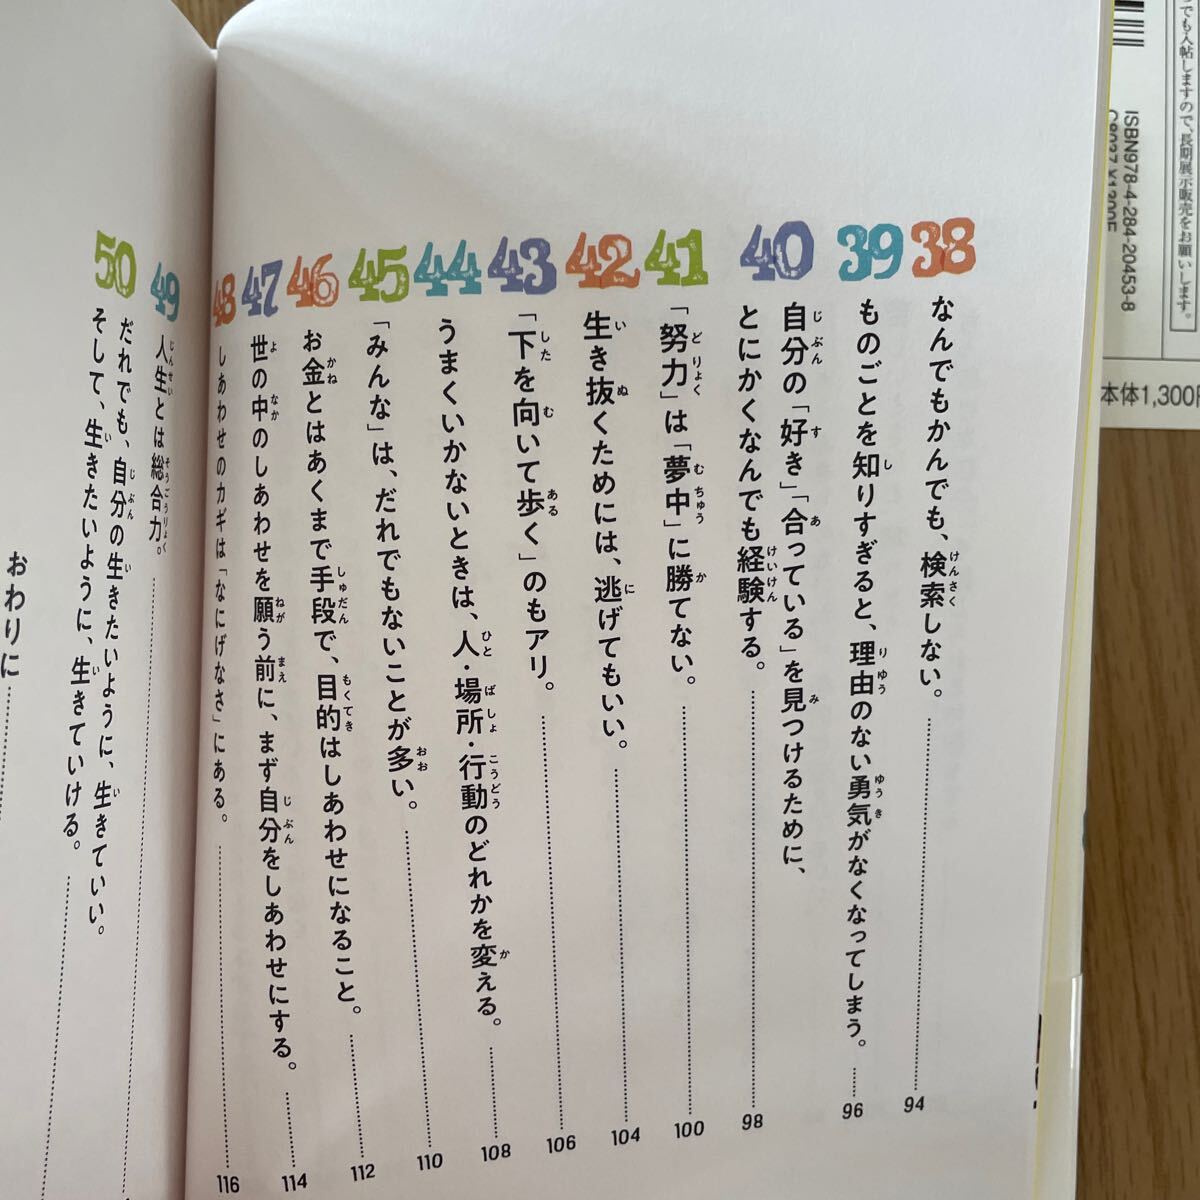 38
なんでもかんでも、検索しない。
94
39
ものごとを知りすぎると、理由のない勇気がなくなってしまう。
96
40
自分の「好き」「合っている」を見つけるために、
とにかくなんでも経験する。
98
41
「努力」は「夢中」に勝てない。
100
42
生き抜くためには、逃げてもいい。
104
43
「下を向いて歩く」のもアリ。
106
44
うまくいかないときは、人・場所・行動のどれかを変える。
108
45
「みんな」は、だれでもないことが多い。
110
46
お金とはあくまで手段で、目的はしあわせになること。
112
47
世の中のしあわせを願う前に、まず自分をしあわせにする。
114
48
しあわせのカギは「なにげなさ」にある。
116
49
人生とは総合力。
50
だれでも、自分の生きたいように、生きていい。
そして、生きたいように、生きていける。
おわりに
でも入帖しますので、長期展示販売をお願いします。
ISBN978-4-284-20453-8
本体1,300円